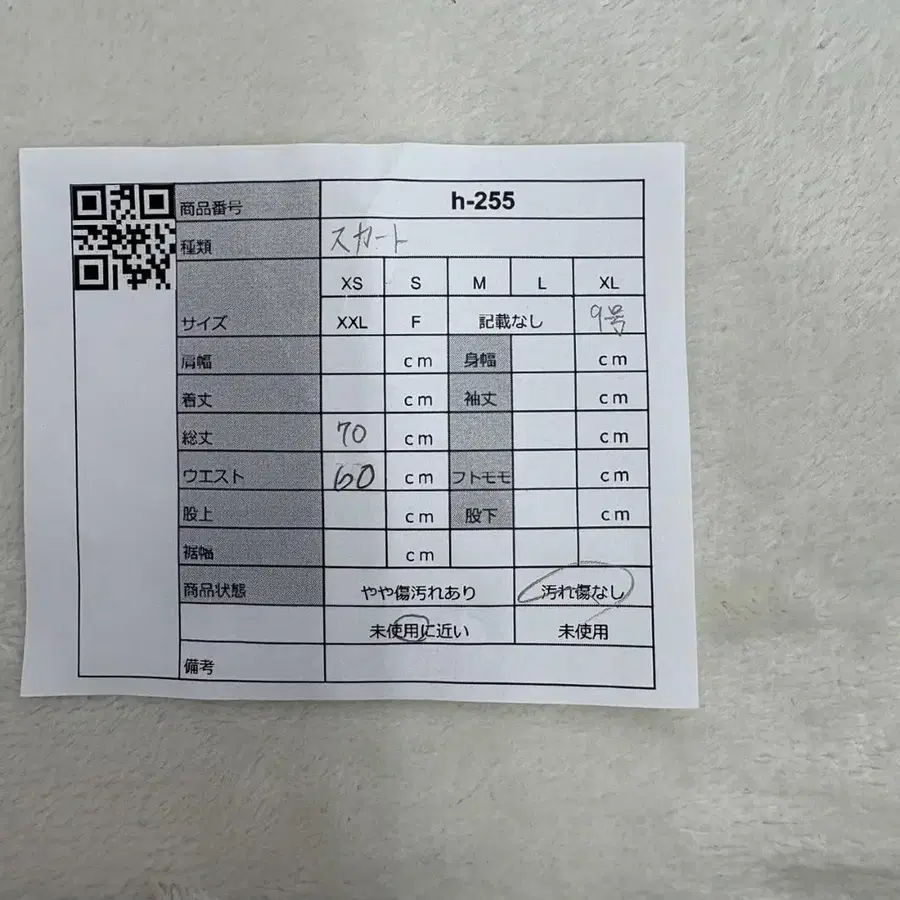 商品番号 h-255
種類 スカート
XS S M L XL
サイズ XXL F 記載なし 9号
肩幅 cm 身幅 cm
着丈 cm 袖丈 cm
総丈 70 cm
ウエスト 60 cm フトモモ cm
股上 cm 股下 cm
裾幅 cm
商品状態 やや傷汚れあり 汚れ傷なし
未使用に近い 未使用
備考